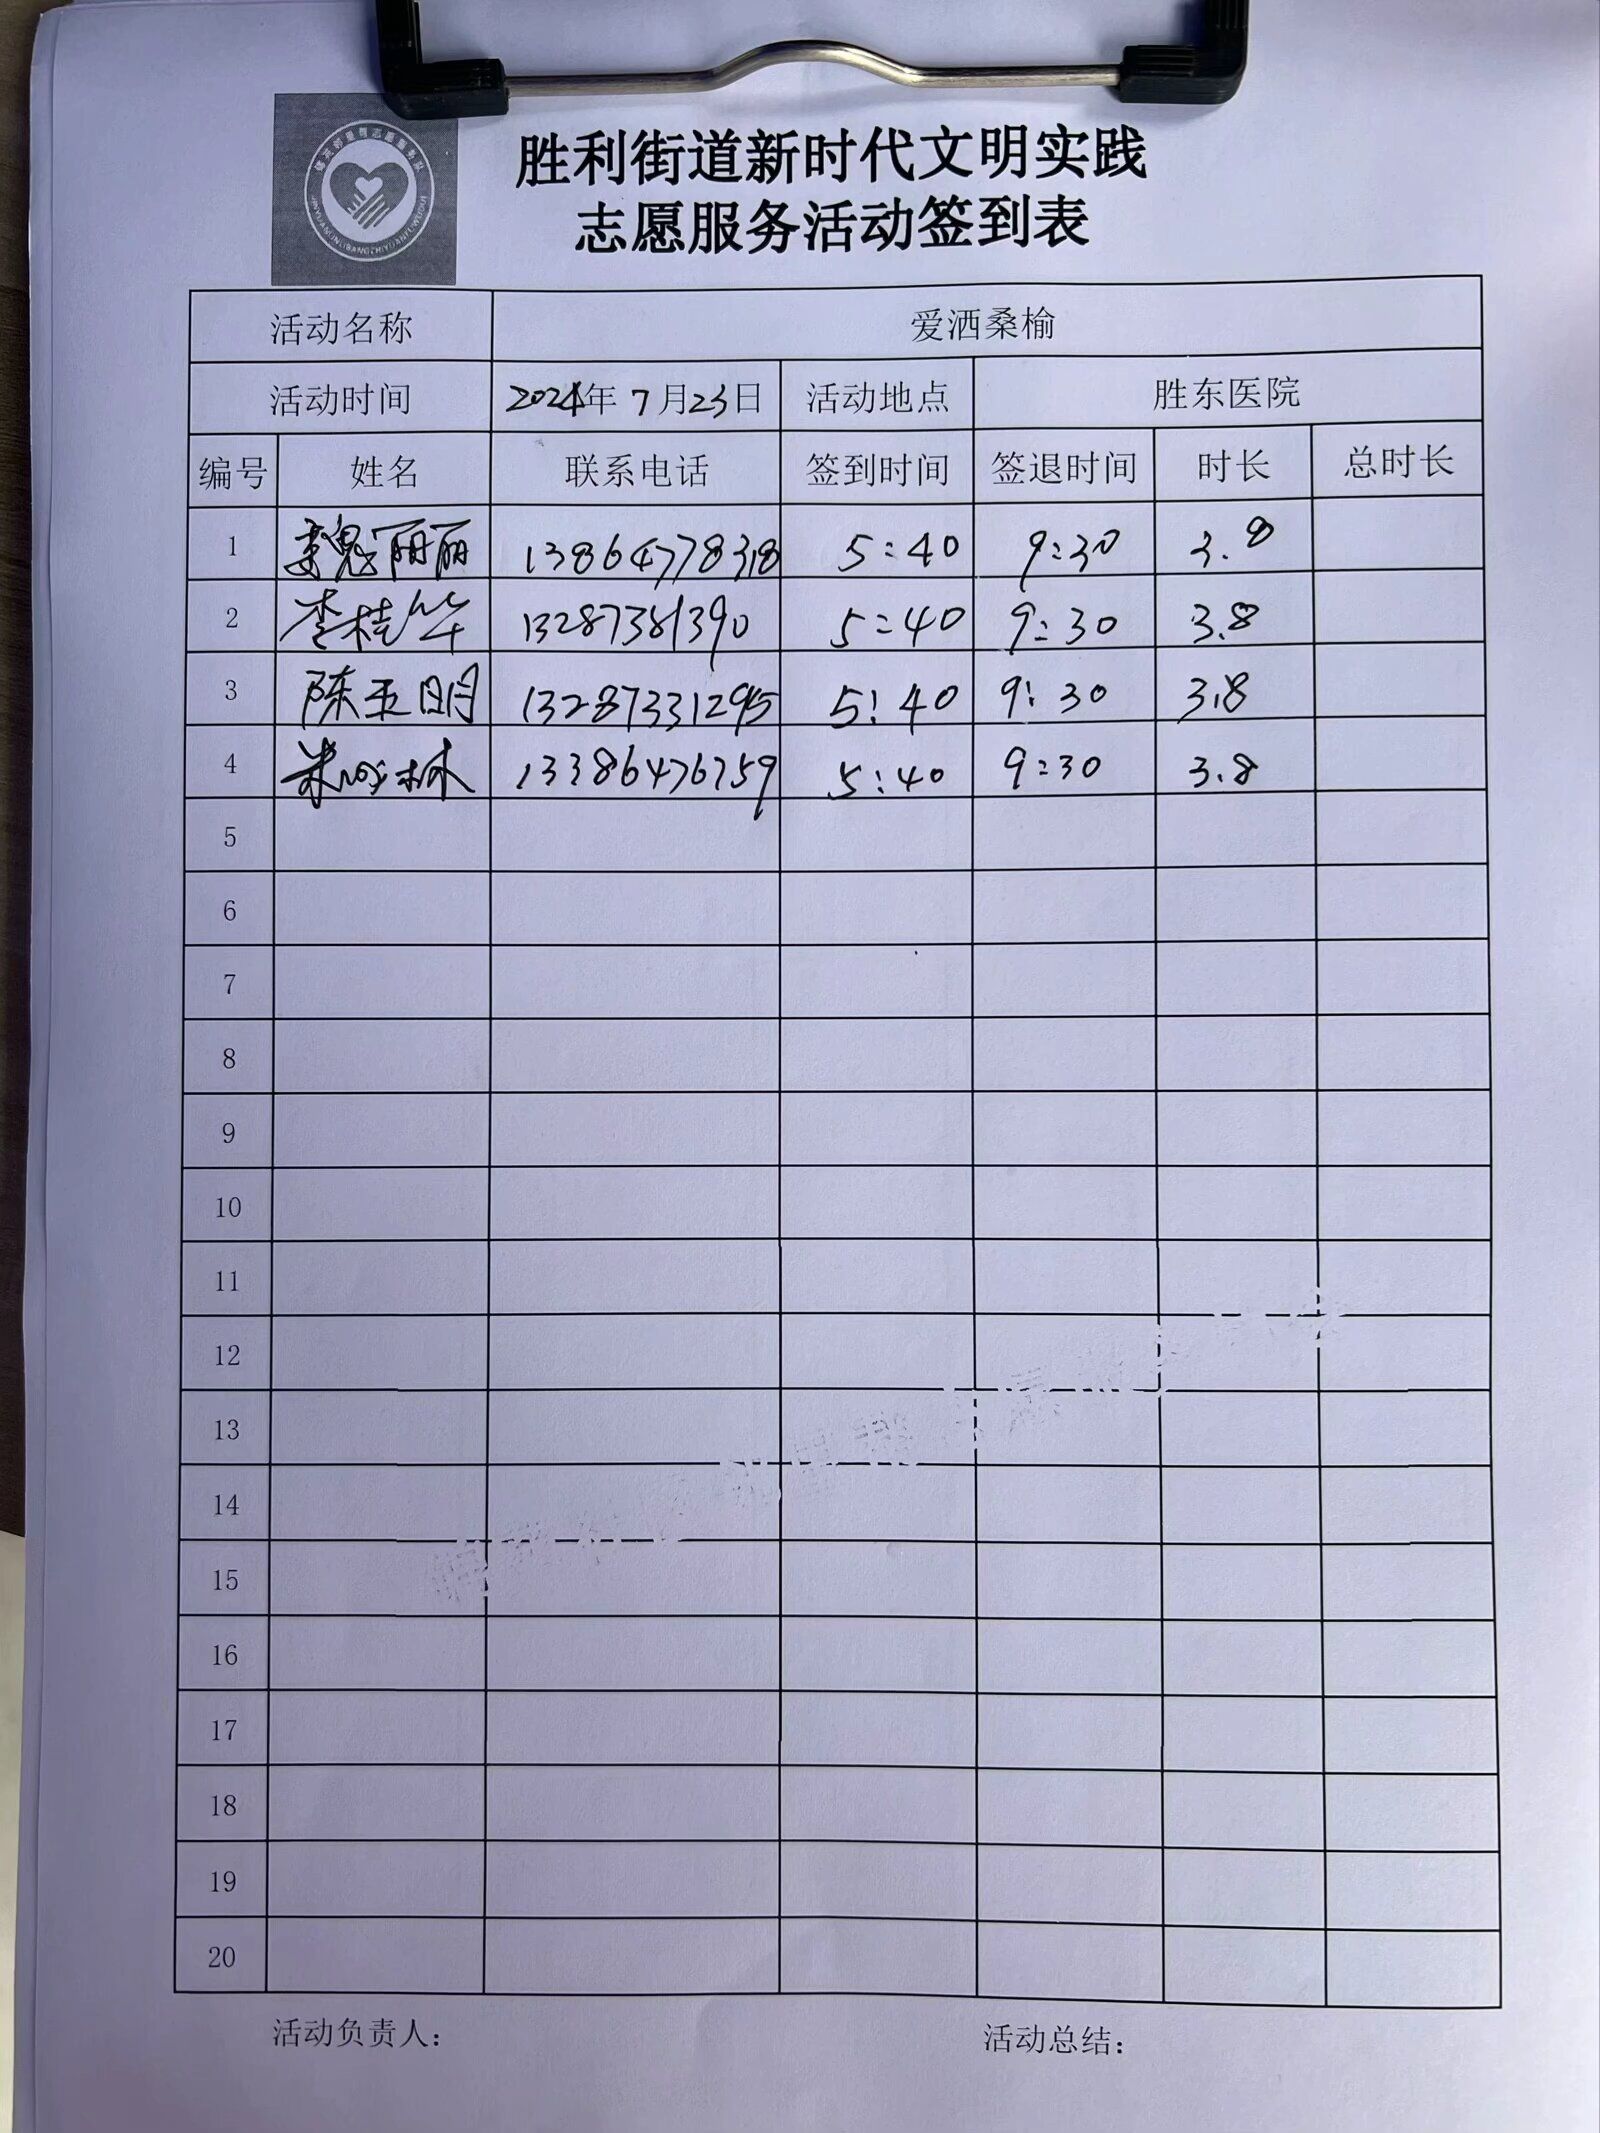 胜利街道新时代文明实践
志愿服务活动签到表
活动名称 爱洒桑榆
活动时间 2024年7月23日 活动地点 胜东医院
编号 姓名 联系电话 签到时间 签退时间 时长 总时长
1 魏丽丽 13864778318 5:40 9:30 3.8
2 李桂华 13287381390 5:40 9:30 3.8
3 陈玉明 13287331295 5:40 9:30 3.8
4 13386476759 5:40 9:30 3.8
5
6
7
8
9
10
11
12
13
14
15
16
17
18
19
20
活动负责人： 活动总结：